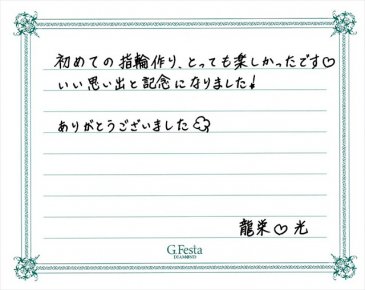 初めての指輪作り、とっても楽しかったです♡
いい思い出と記念になりました!
ありがとうございました
龍栄♡光
G.Festa
DIAMOND